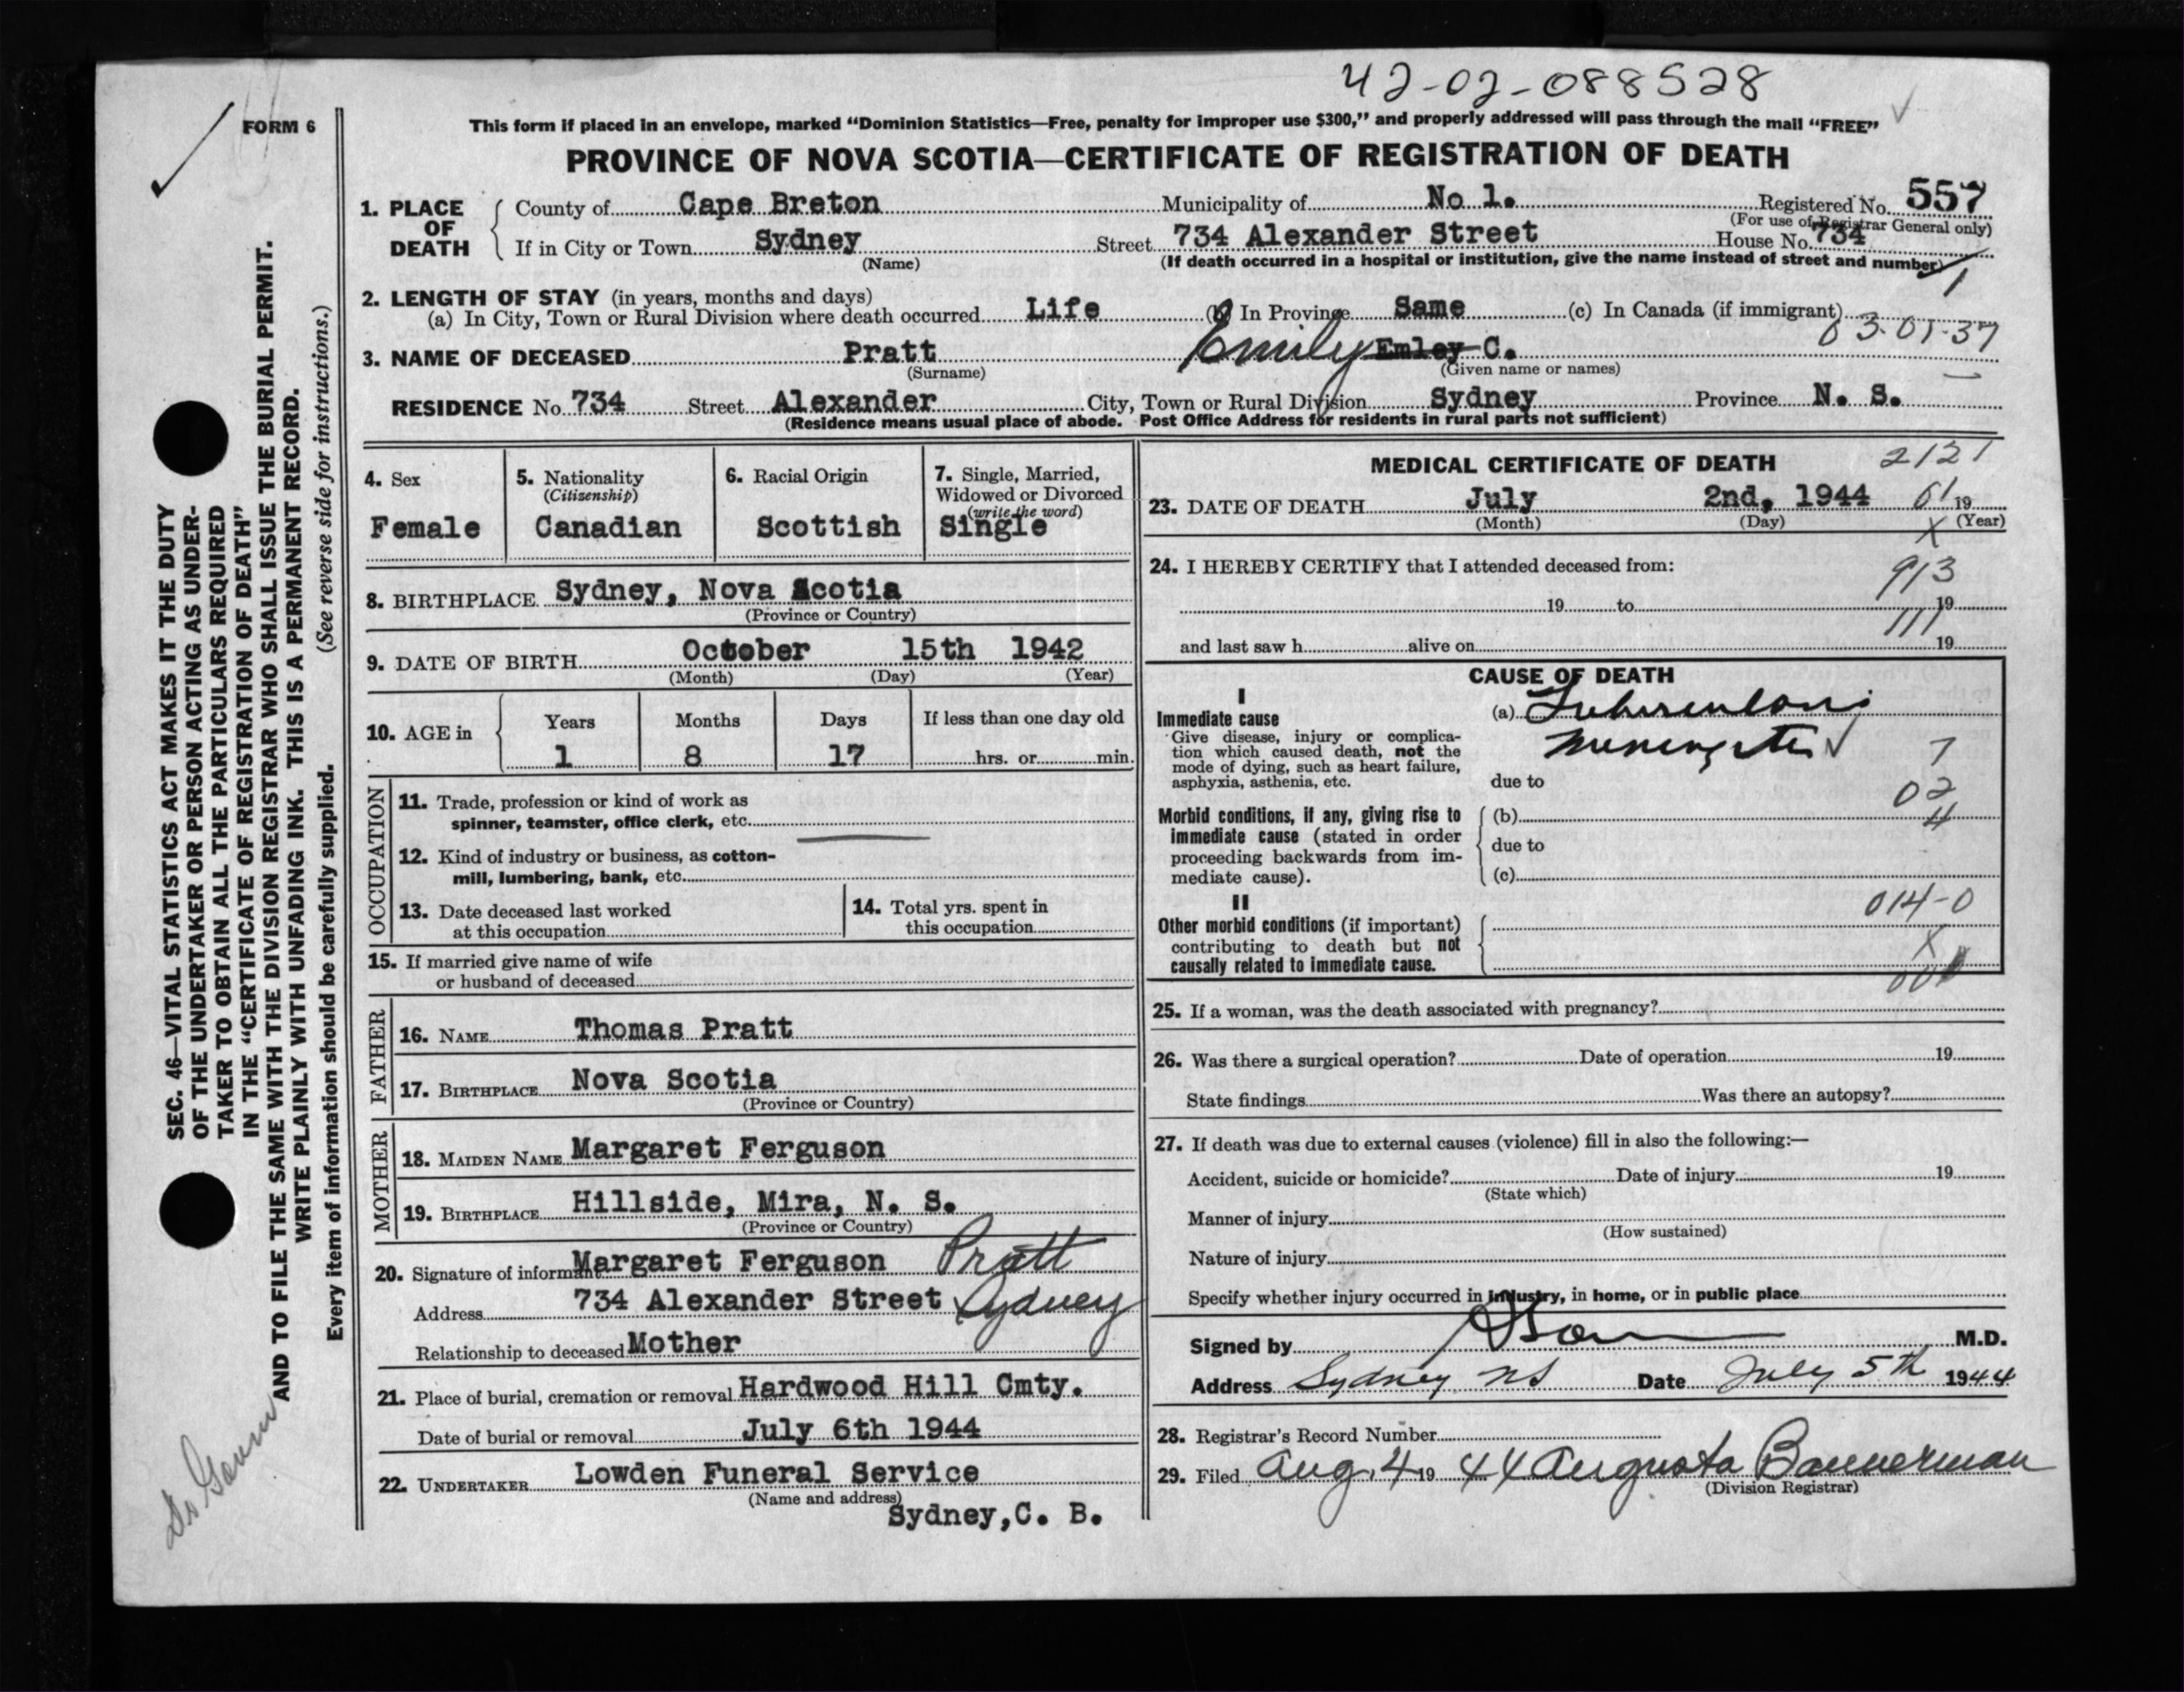 42-02-088528
FORM 6
This form if placed in an envelope, marked "Dominion Statistics—Free, penalty for improper use $300," and properly addressed will pass through the mail "FREE"
PROVINCE OF NOVA SCOTIA—CERTIFICATE OF REGISTRATION OF DEATH
1. PLACE OF DEATH
County of Cape Breton Municipality of No 1. Registered No. 557
(For use of Registrar General only)
If in City or Town Sydney Street 734 Alexander Street House No. 734
(Name) (If death occurred in a hospital or institution, give the name instead of street and number) 1
2. LENGTH OF STAY (in years, months and days)
(a) In City, Town or Rural Division where death occurred Life (b) In Province Same (c) In Canada (if immigrant)
03-01-37
3. NAME OF DECEASED Pratt Emily Emley C.
(Surname) (Given name or names)
RESIDENCE No. 734 Street Alexander City, Town or Rural Division Sydney Province N. S.
(Residence means usual place of abode. Post Office Address for residents in rural parts not sufficient)
4. Sex
Female
5. Nationality
(Citizenship)
Canadian
6. Racial Origin
Scottish
7. Single, Married,
Widowed or Divorced
(write the word)
Single
8. BIRTHPLACE Sydney, Nova Scotia
(Province or Country)
9. DATE OF BIRTH October 15th 1942
(Month) (Day) (Year)
10. AGE in
Years Months Days If less than one day old
1 8 17 hrs. or min.
OCCUPATION
11. Trade, profession or kind of work as
spinner, teamster, office clerk, etc.
12. Kind of industry or business, as cotton-
mill, lumbering, bank, etc.
13. Date deceased last worked
at this occupation
14. Total yrs. spent in
this occupation
15. If married give name of wife
or husband of deceased
FATHER
16. NAME Thomas Pratt
17. BIRTHPLACE Nova Scotia
(Province or Country)
MOTHER
18. MAIDEN NAME Margaret Ferguson
19. BIRTHPLACE Hillside, Mira, N. S.
(Province or Country)
20. Signature of informant Margaret Ferguson Pratt
Address 734 Alexander Street Sydney
Relationship to deceased Mother
21. Place of burial, cremation or removal Hardwood Hill Cmty.
Date of burial or removal July 6th 1944
22. UNDERTAKER Lowden Funeral Service
(Name and address)
Sydney, C. B.
MEDICAL CERTIFICATE OF DEATH 2121
23. DATE OF DEATH July 2nd, 1944 61 19
(Month) (Day) (Year)
X
24. I HEREBY CERTIFY that I attended deceased from:
913
19 to 19
111
and last saw h alive on 19
CAUSE OF DEATH
I
Immediate cause
Give disease, injury or complica-
tion which caused death, not the
mode of dying, such as heart failure,
asphyxia, asthenia, etc.
(a) Tuberculous
Meningitis
7
due to
02
Morbid conditions, if any, giving rise to
immediate cause (stated in order
proceeding backwards from im-
mediate cause).
(b)
due to
(c)
II
014-0
Other morbid conditions (if important)
contributing to death but not
causally related to immediate cause.
X
25. If a woman, was the death associated with pregnancy?
26. Was there a surgical operation? Date of operation 19
State findings Was there an autopsy?
27. If death was due to external causes (violence) fill in also the following:—
Accident, suicide or homicide? Date of injury 19
(State which)
Manner of injury
(How sustained)
Nature of injury
Specify whether injury occurred in industry, in home, or in public place
Signed by M.D.
Address Sydney NS Date July 5th 1944
28. Registrar's Record Number
29. Filed Aug. 4 19 44 Augusta Bannerman
(Division Registrar)
SEC. 46—VITAL STATISTICS ACT MAKES IT THE DUTY
OF THE UNDERTAKER OR PERSON ACTING AS UNDER-
TAKER TO OBTAIN ALL THE PARTICULARS REQUIRED
IN THE "CERTIFICATE OF REGISTRATION OF DEATH"
AND TO FILE THE SAME WITH THE DIVISION REGISTRAR WHO SHALL ISSUE THE BURIAL PERMIT.
WRITE PLAINLY WITH UNFADING INK. THIS IS A PERMANENT RECORD.
Every item of information should be carefully supplied. (See reverse side for instructions.)